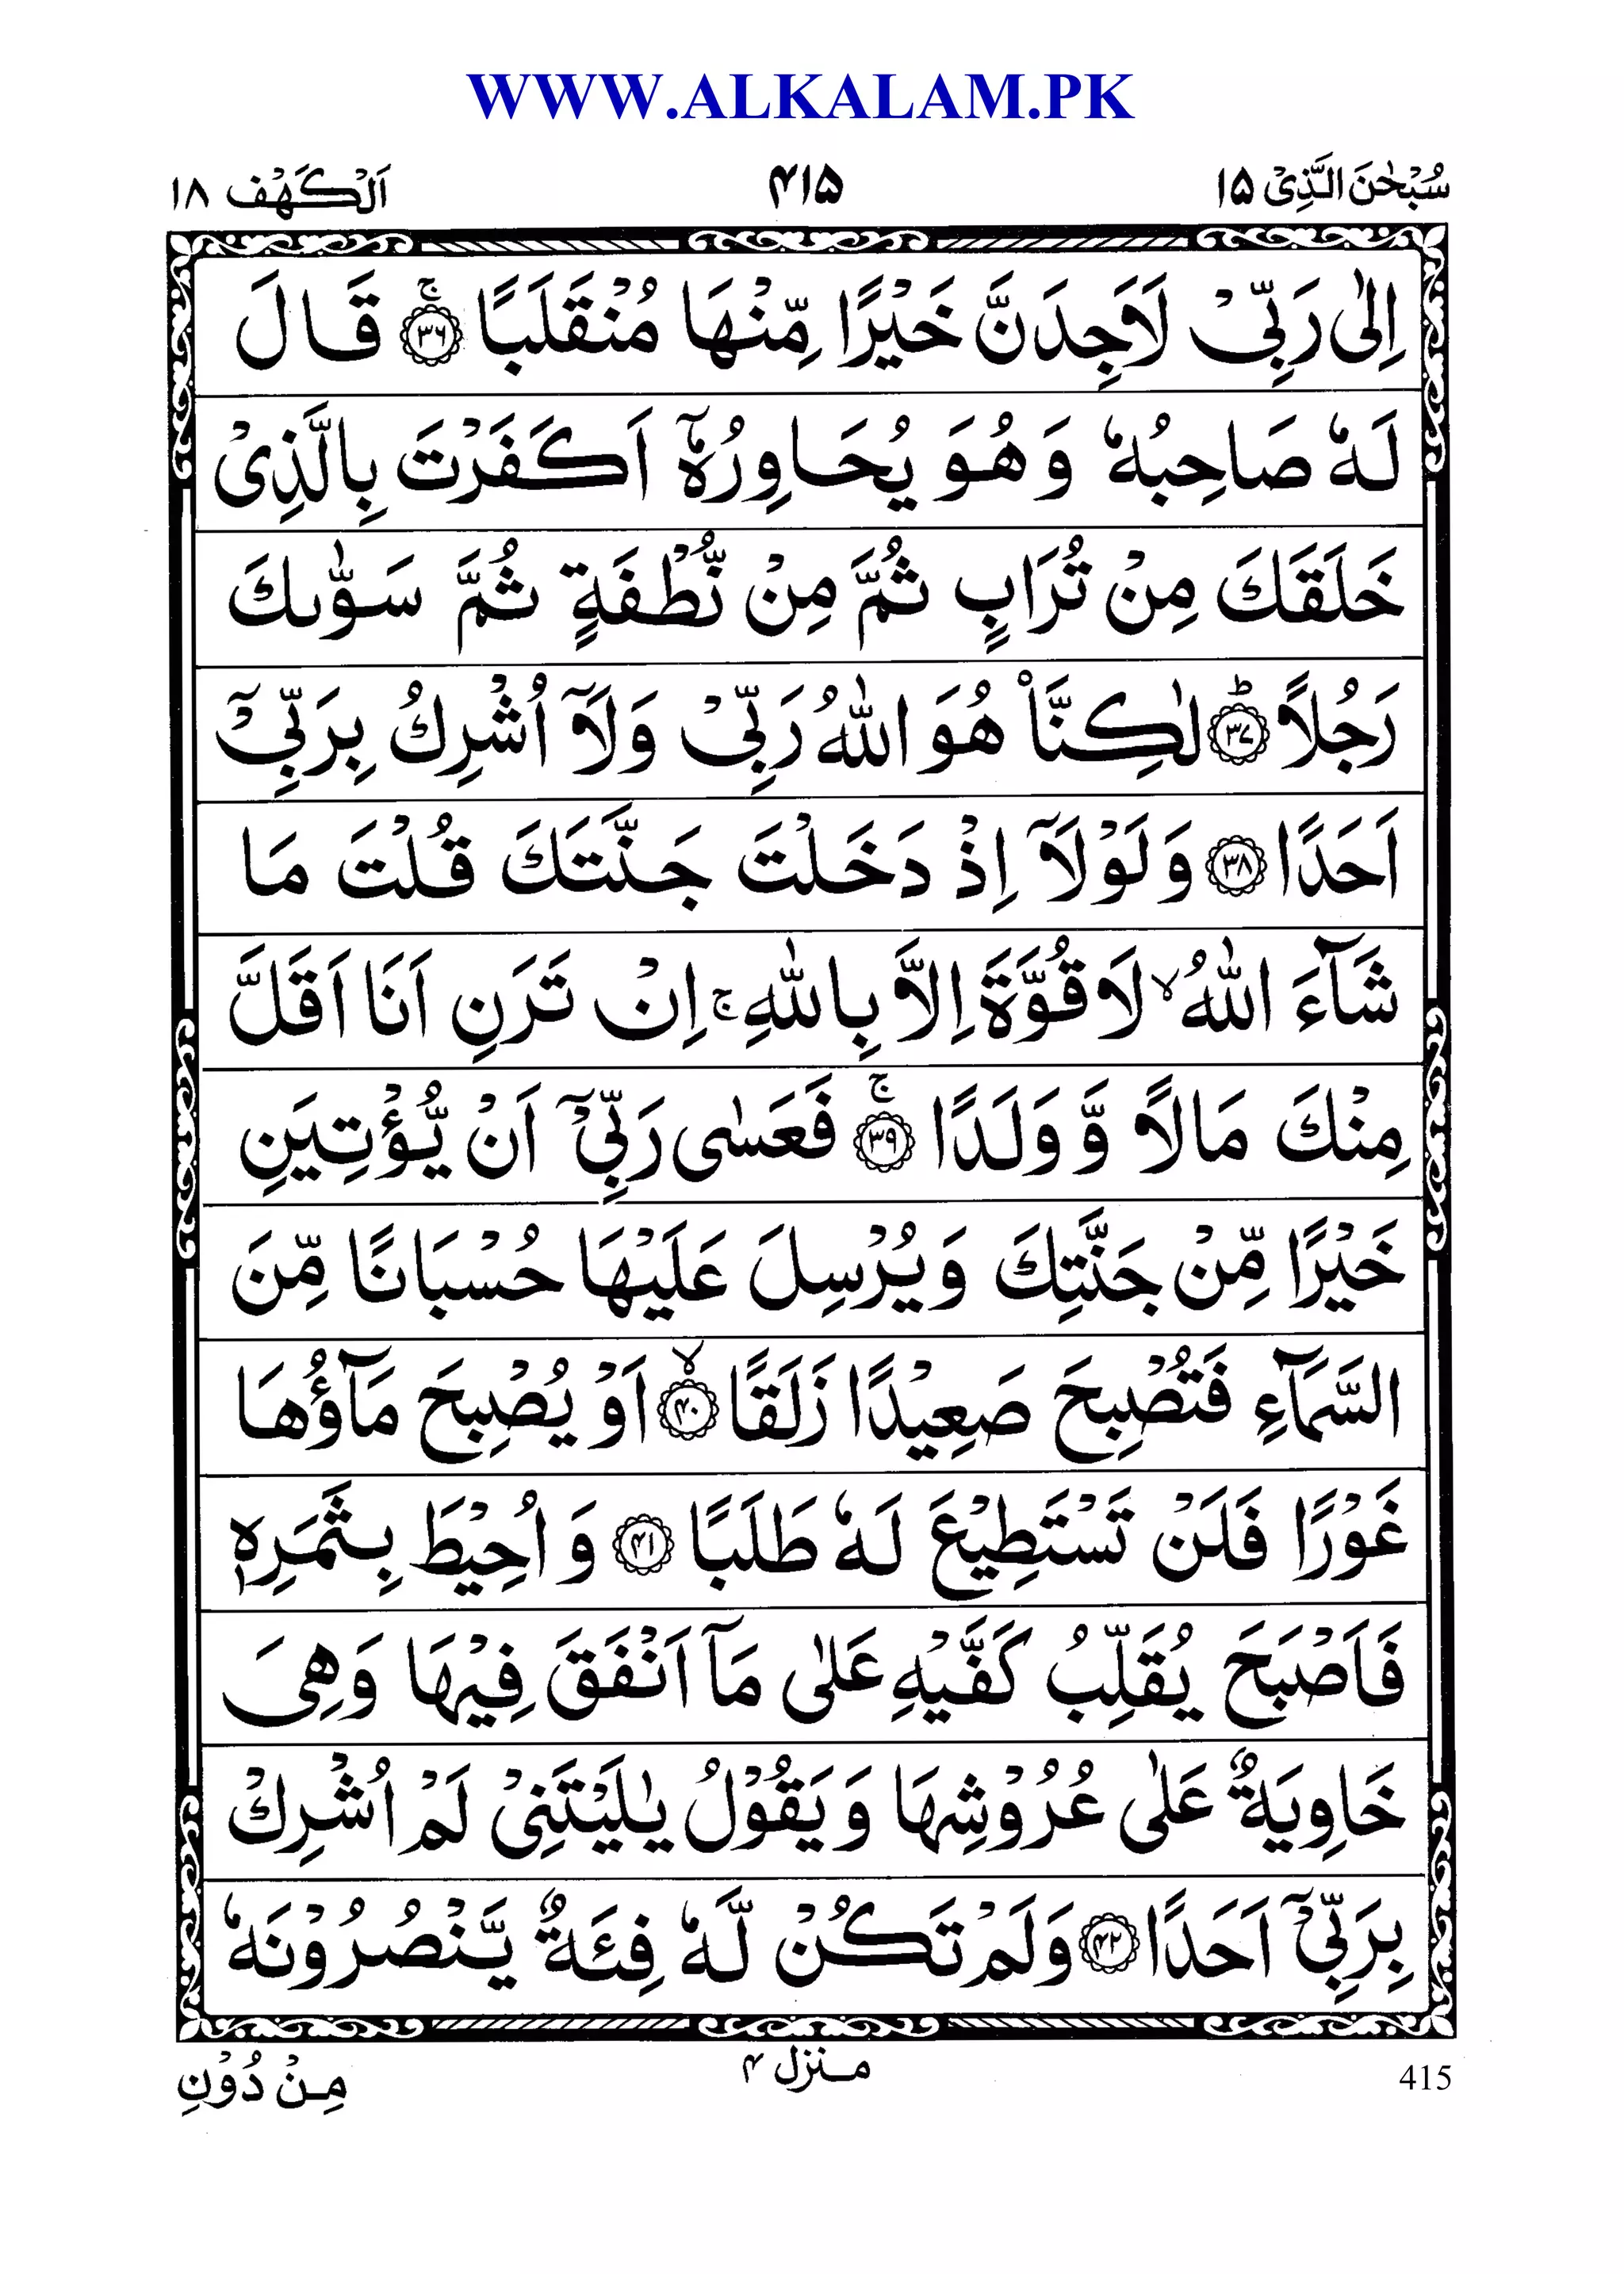 WWW.ALKALAM.PK
سُبْحٰنَ الَّذِیْۤ ١٥ ٤١٥ اَلْكَهْف ١٨
اِلٰی رَبِّیْ لَاَجِدَنَّ خَیْرًا مِّنْهَا مُنْقَلَبًا ۚ﴿۳۶﴾ قَالَ
لَهٗ صَاحِبُهٗ وَ هُوَ یُحَاوِرُهٗۤ اَكَفَرْتَ بِالَّذِیْ
خَلَقَكَ مِنْ تُرَابٍ ثُمَّ مِنْ نُّطْفَةٍ ثُمَّ سَوّٰىكَ
رَجُلًا ؕ﴿۳۷﴾ لٰكِنَّا۠ هُوَ اللّٰهُ رَبِّیْ وَ لَاۤ اُشْرِكُ بِرَبِّیْۤ
اَحَدًا ﴿۳۸﴾ وَ لَوْ لَاۤ اِذْ دَخَلْتَ جَنَّتَكَ قُلْتَ مَا
شَآءَ اللّٰهُ ۙ لَا قُوَّةَ اِلَّا بِاللّٰهِ ۚ اِنْ تَرَنِ اَنَا اَقَلَّ
مِنْكَ مَالًا وَّ وَلَدًا ۚ﴿۳۹﴾ فَعَسٰی رَبِّیْۤ اَنْ یُّؤْتِیَنِ
خَیْرًا مِّنْ جَنَّتِكَ وَ یُرْسِلَ عَلَیْهَا حُسْبَانًا مِّنَ
السَّمَآءِ فَتُصْبِحَ صَعِیْدًا زَلَقًا ۙ﴿۴۰﴾ اَوْ یُصْبِحَ مَآؤُهَا
غَوْرًا فَلَنْ تَسْتَطِیْعَ لَهٗ طَلَبًا ﴿۴۱﴾ وَ اُحِیْطَ بِثَمَرِهٖ
فَاَصْبَحَ یُقَلِّبُ كَفَّیْهِ عَلٰی مَاۤ اَنْفَقَ فِیْهَا وَهِیَ
خَاوِیَةٌ عَلٰی عُرُوْشِهَا وَ یَقُوْلُ یٰلَیْتَنِیْ لَمْ اُشْرِكْ
بِرَبِّیْۤ اَحَدًا ﴿۴۲﴾ وَلَمْ تَكُنْ لَّهٗ فِئَةٌ یَّنْصُرُوْنَهٗ
415 مـنزل ۴ مِـنْ دُوْنِ